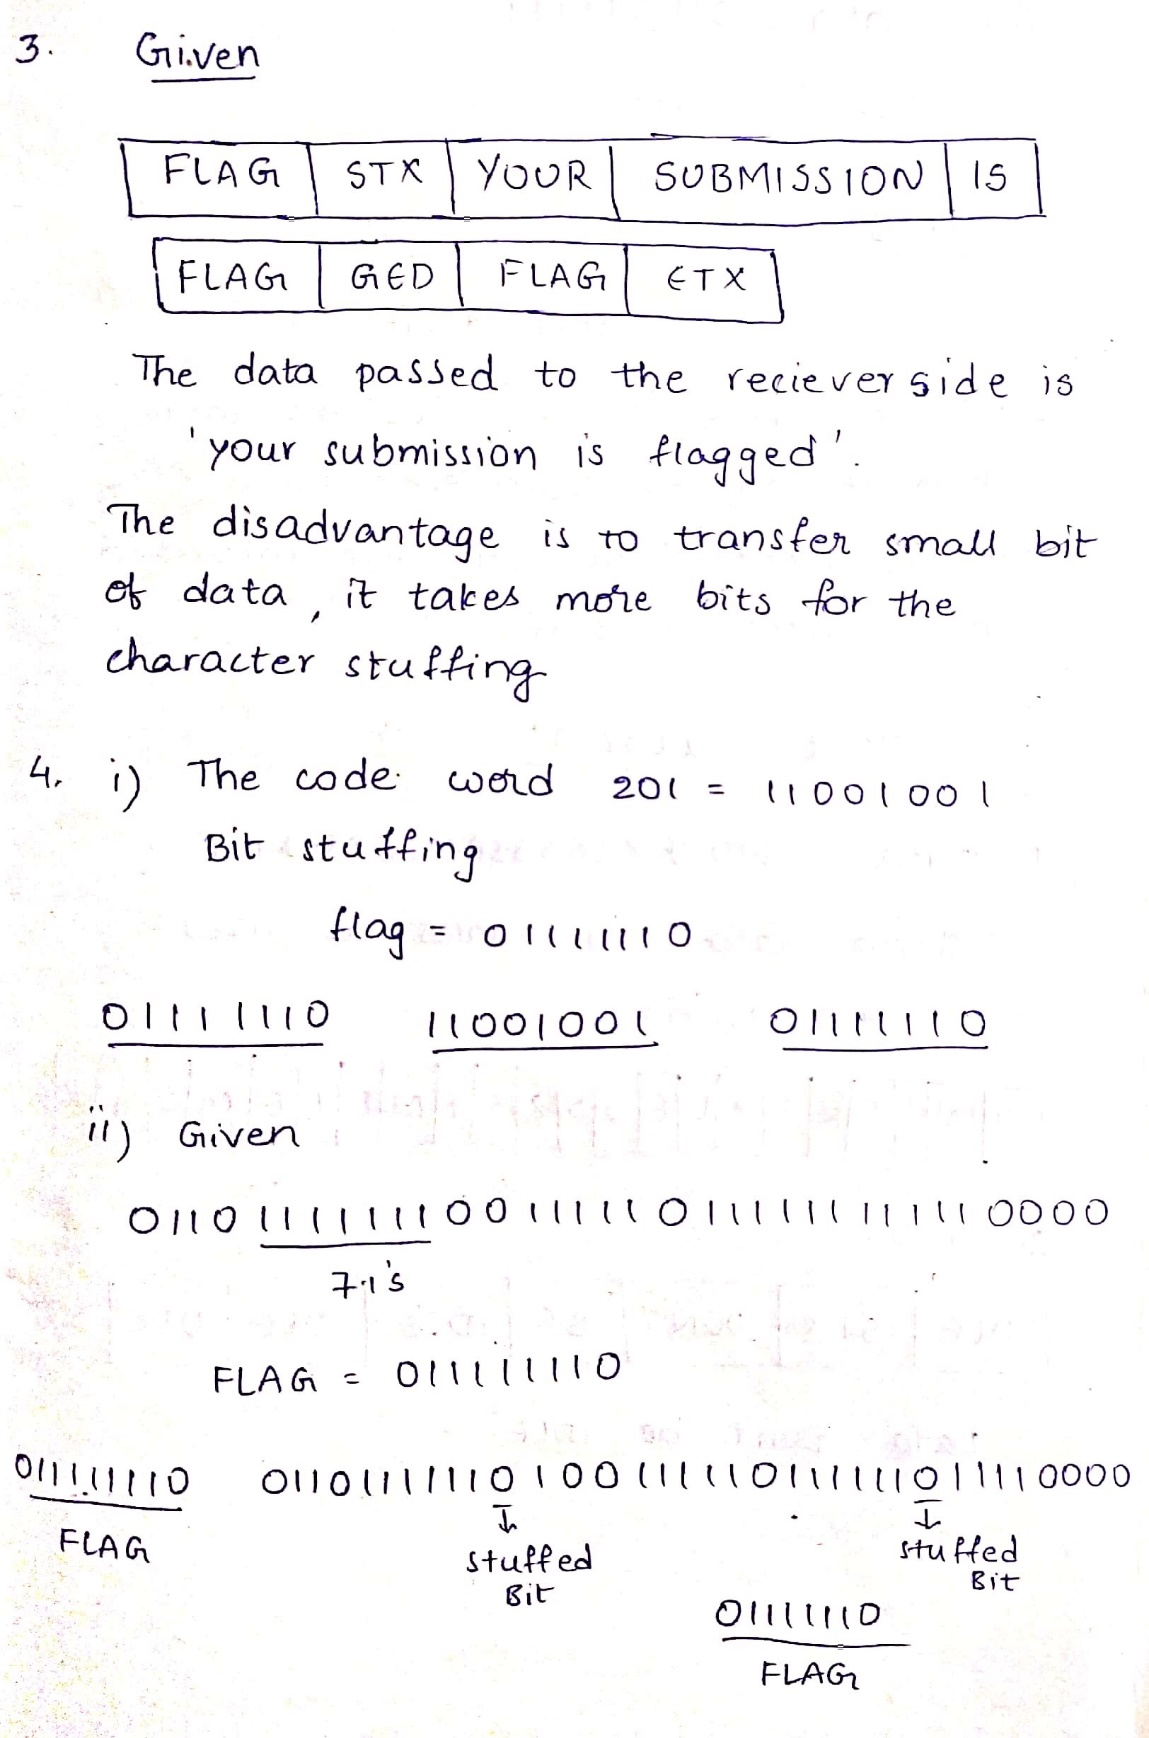 3. Given
FLAG STX YOUR SUBMISSION IS
FLAG GED FLAG ETX
The data passed to the reciever side is
'your submission is flagged'.
The disadvantage is to transfer small bit
of data, it takes more bits for the
character stuffing
4. i) The code word 201 = 11001001
Bit stuffing
flag = 01111110
01111110 11001001 01111110
ii) Given
0110111111100111110111111111110000
7 1's
FLAG = 011111110
011111110 011011111101001111101111110111110000
FLAG stuffed stuffed
Bit Bit
01111110
FLAG